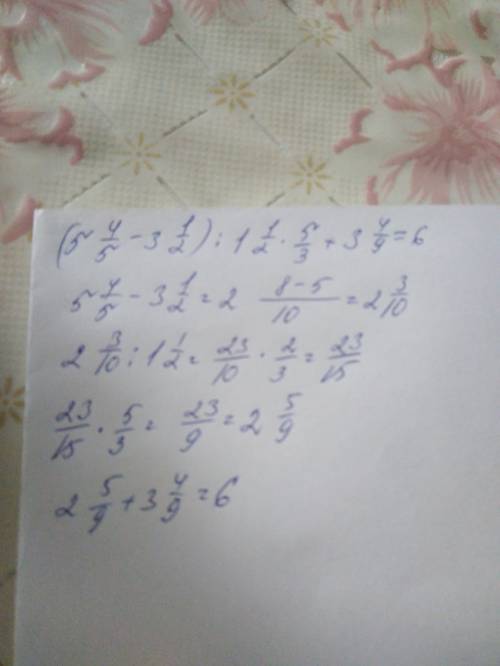 (5 4/5 - 3 1/2) : 1 1/2 · 5/3 + 3 4/9 = 6
5 4/5 - 3 1/2 = 2 (8-5)/10 = 2 3/10
2 3/10 : 1 1/2 = 23/10 · 2/3 = 23/15
23/15 · 5/3 = 23/9 = 2 5/9
2 5/9 + 3 4/9 = 6